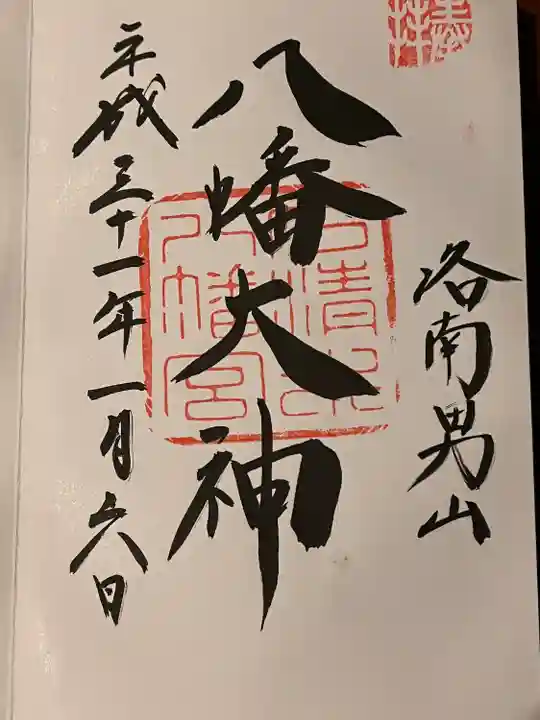 奉拝
洛南男山
八幡大神
石清水
八幡宮
平成三十一年一月六日